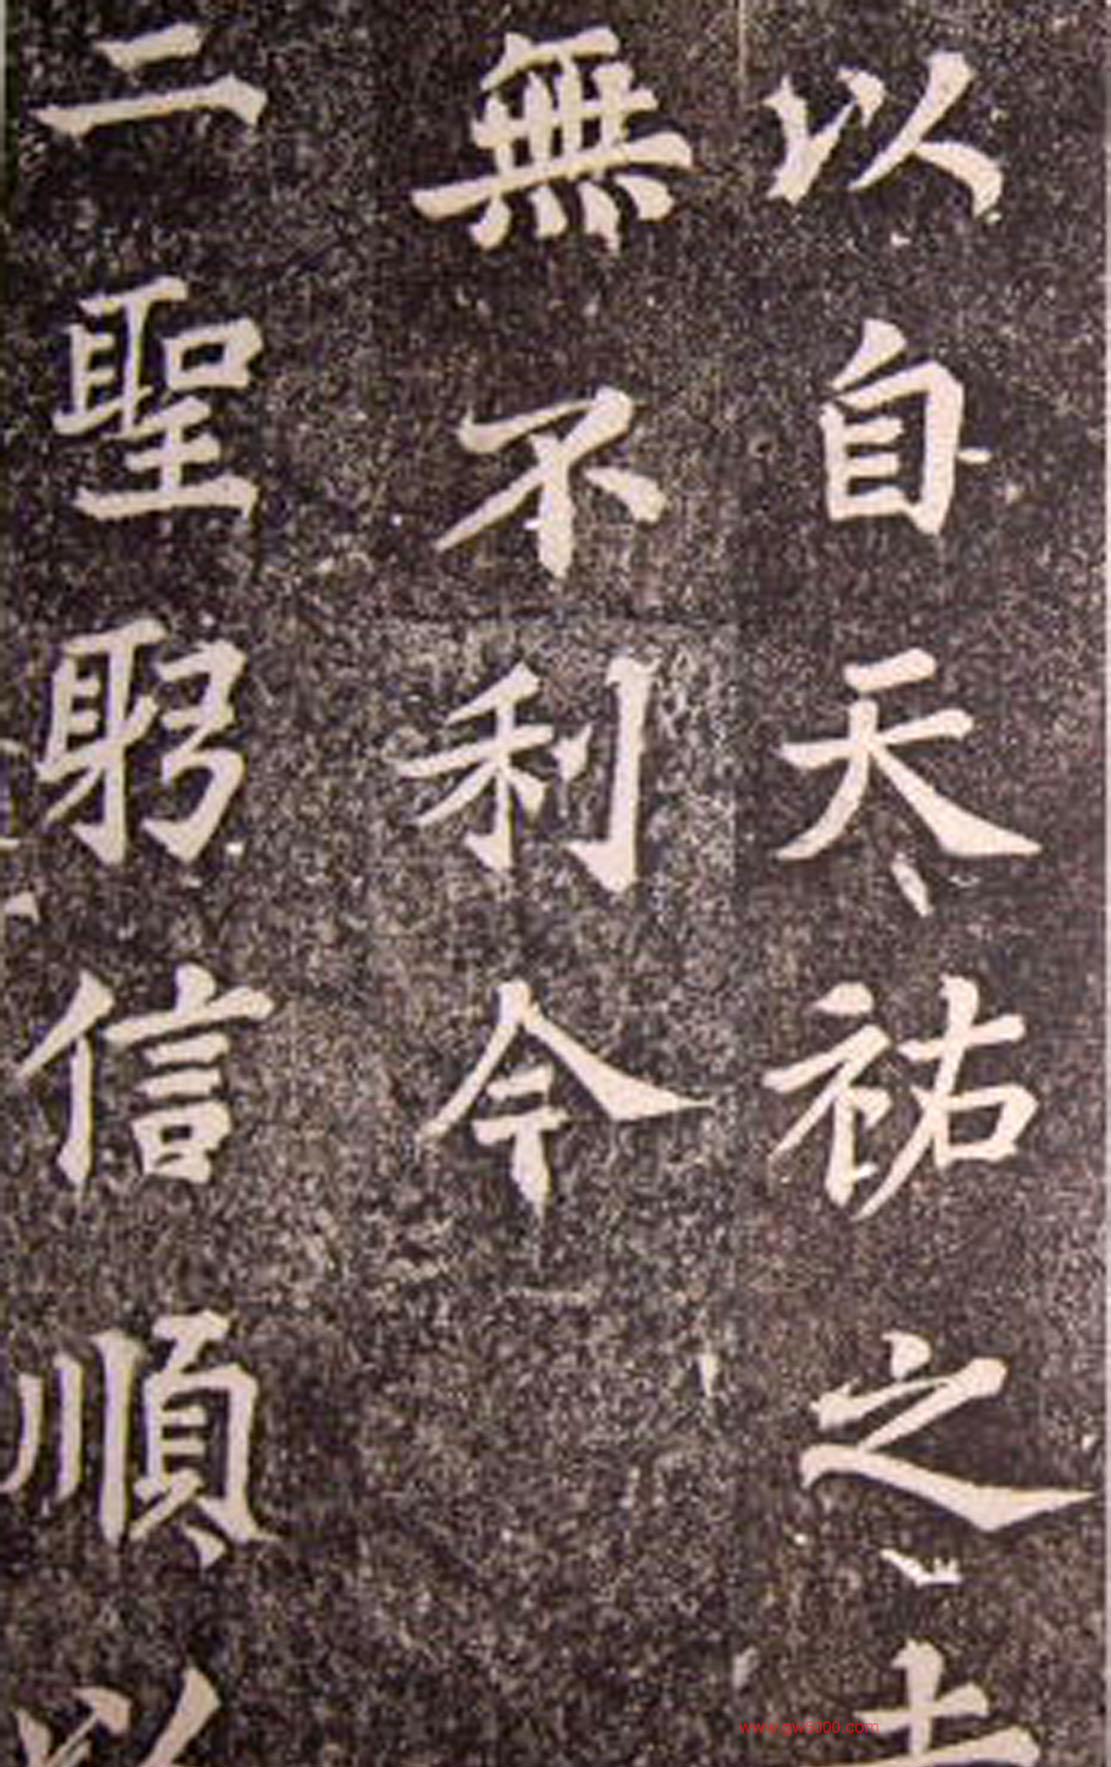 以自天祐之吉
無不利今
二聖躬信順以
www.gw5000.com